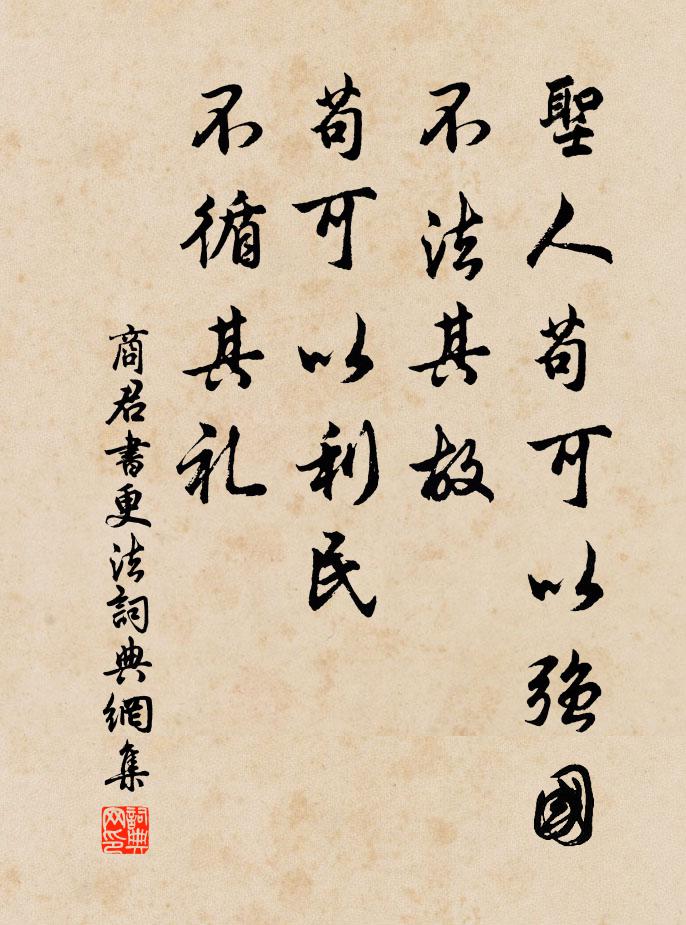 聖人苟可以強國
不法其故
苟可以利民
不循其礼
商君書更法詞典網集
詞典网印